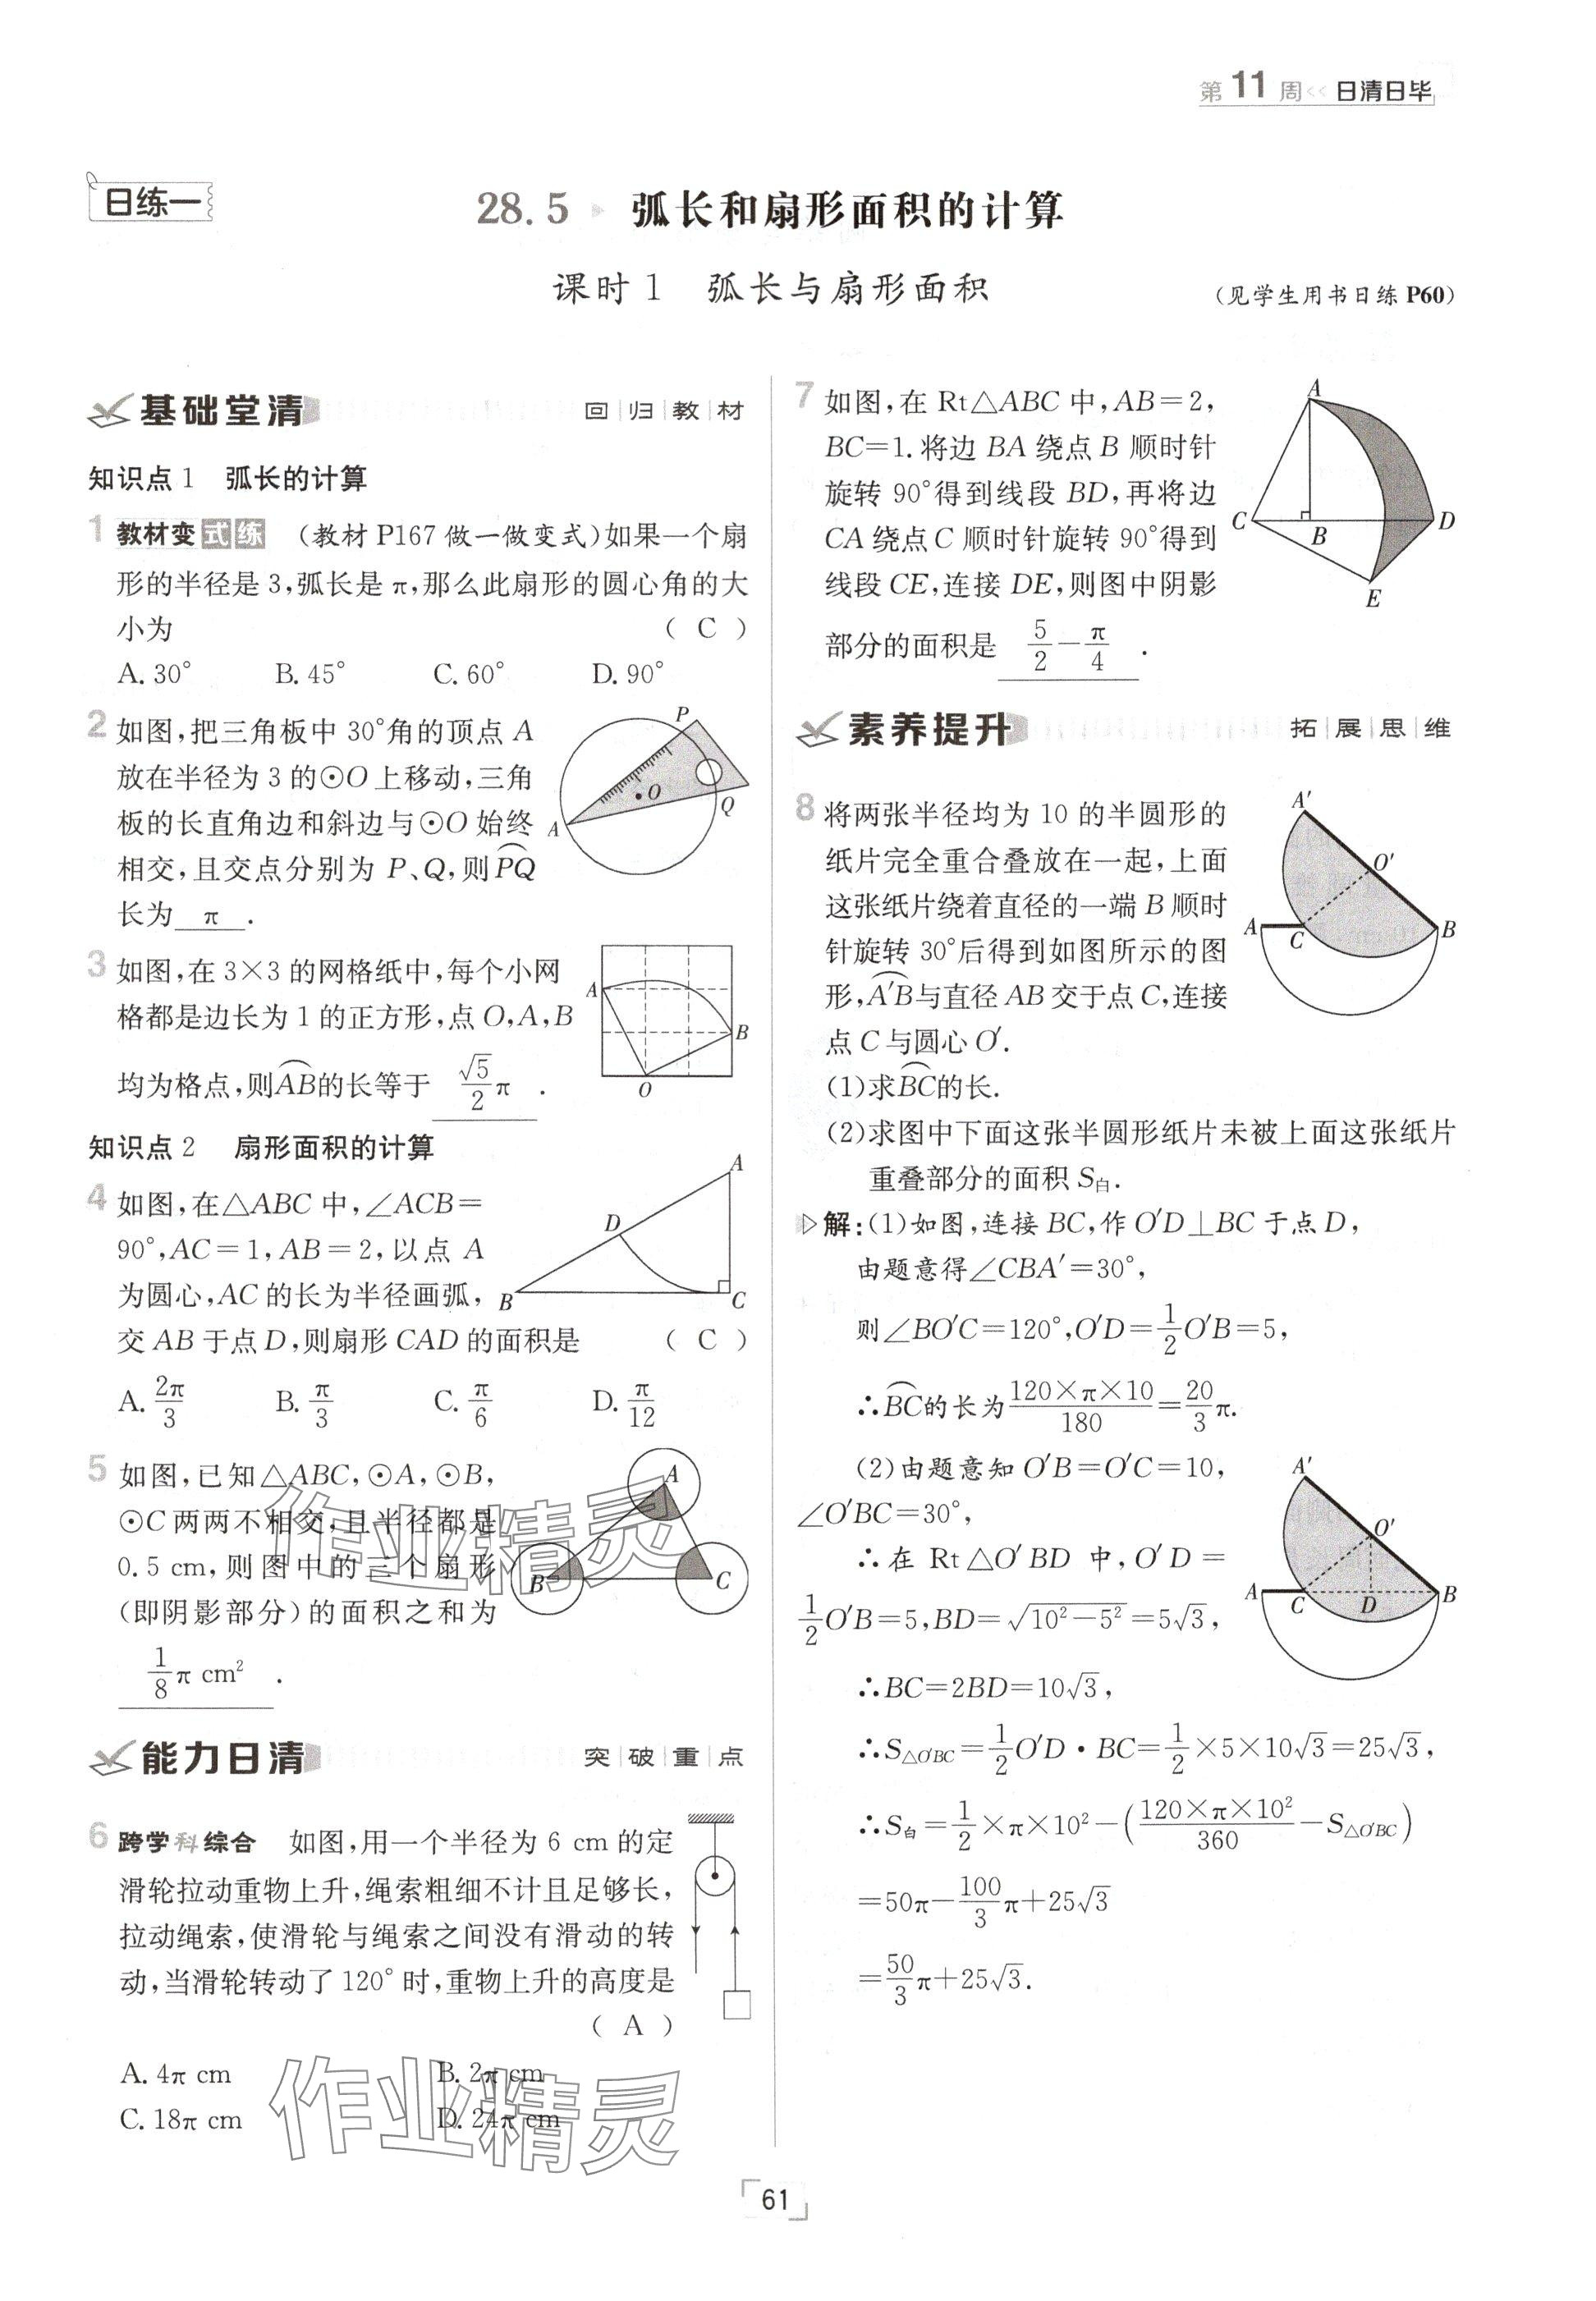 第 11 周<< 日清日毕
日练一
28.5 弧长和扇形面积的计算
课时1 弧长与扇形面积
(见学生用书日练P60)
基础堂清 回|归|教|材
知识点1 弧长的计算
1 教材变式练 (教材P167做一做变式)如果一个扇
形的半径是3,弧长是π,那么此扇形的圆心角的大
小为 ( C )
A. 30° B. 45° C. 60° D. 90°
2 如图,把三角板中30°角的顶点A
放在半径为3的⊙O上移动,三角
板的长直角边和斜边与⊙O始终
相交,且交点分别为P、Q,则⌒PQ
长为 π .
P
O
A
Q
3 如图,在3×3的网格纸中,每个小网
格都是边长为1的正方形,点O,A,B
均为格点,则⌒AB的长等于 √5/2 π .
A
B
O
知识点2 扇形面积的计算
4 如图,在△ABC中,∠ACB=
90°,AC=1,AB=2,以点A
为圆心,AC的长为半径画弧,
交AB于点D,则扇形CAD的面积是 ( C )
A. 2π/3 B. π/3 C. π/6 D. π/12
A
D
B
C
5 如图,已知△ABC,⊙A,⊙B,
⊙C两两不相交,且半径都是
0.5 cm,则图中的三个扇形
(即阴影部分)的面积之和为
1/8 π cm² .
A
B
C
能力日清 突|破|重|点
6 跨学科综合 如图,用一个半径为6 cm的定
滑轮拉动重物上升,绳索粗细不计且足够长,
拉动绳索,使滑轮与绳索之间没有滑动的转
动,当滑轮转动了120°时,重物上升的高度是
( A )
A. 4π cm B. 2π cm
C. 18π cm D. 24π cm
7 如图,在Rt△ABC中,AB=2,
BC=1.将边BA绕点B顺时针
旋转90°得到线段BD,再将边
CA绕点C顺时针旋转90°得到
线段CE,连接DE,则图中阴影
部分的面积是 5/2-π/4 .
A
C
B
D
E
素养提升 拓|展|思|维
8 将两张半径均为10的半圆形的
纸片完全重合叠放在一起,上面
这张纸片绕着直径的一端B顺时
针旋转30°后得到如图所示的图
形,⌒A′B与直径AB交于点C,连接
点C与圆心O′.
(1)求⌒BC的长.
(2)求图中下面这张半圆形纸片未被上面这张纸片
重叠部分的面积S白.
A′
O′
A
C
B
解:(1)如图,连接BC,作O′D⊥BC于点D,
由题意得∠CBA′=30°,
则∠BO′C=120°,O′D=1/2 O′B=5,
∴⌒BC的长为 120×π×10/180=20/3 π.
(2)由题意知O′B=O′C=10,
∠O′BC=30°,
∴在Rt△O′BD中,O′D=
1/2 O′B=5,BD=√(10²-5²)=5√3,
∴BC=2BD=10√3,
∴S△O′BC=1/2 O′D·BC=1/2×5×10√3=25√3,
∴S白=1/2×π×10²-(120×π×10²/360-S△O′BC)
=50π-100/3 π+25√3
=50/3 π+25√3.
A′
O′
A
C
D
B
作业精灵
作业精灵
61